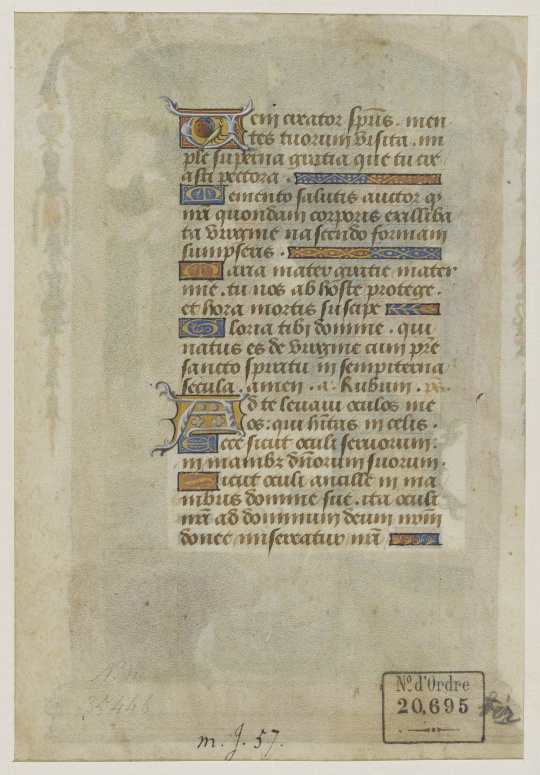 Veni creator spūs . men
tes tuorum visita . im
ple superna gratia que tu cre
asti pectora .
Memento salutis auctor qꝫ
nrī quondam corporis ex illiba
ta virgine nascendo formam
sumpseris .
Maria mater gratie mater
mie . tu nos ab hoste protege .
et hora mortis suscipe
Gloria tibi domine . qui
natus es de virgine cum prē
sancto spiritu in sempiterna
secula . amen . a. Rubum . ps.
Ad te levavi oculos me
os : qui hītas in celis .
Ecce sicut oculi servorum :
in manibꝫ dñorum suorum .
Sicut oculi ancille in ma
nibus domine sue . ita oculi
nrī ad dominum deum nrm̄
donec misereatur nrī
No. d'Ordre
20,695
ter
m. J. 57.